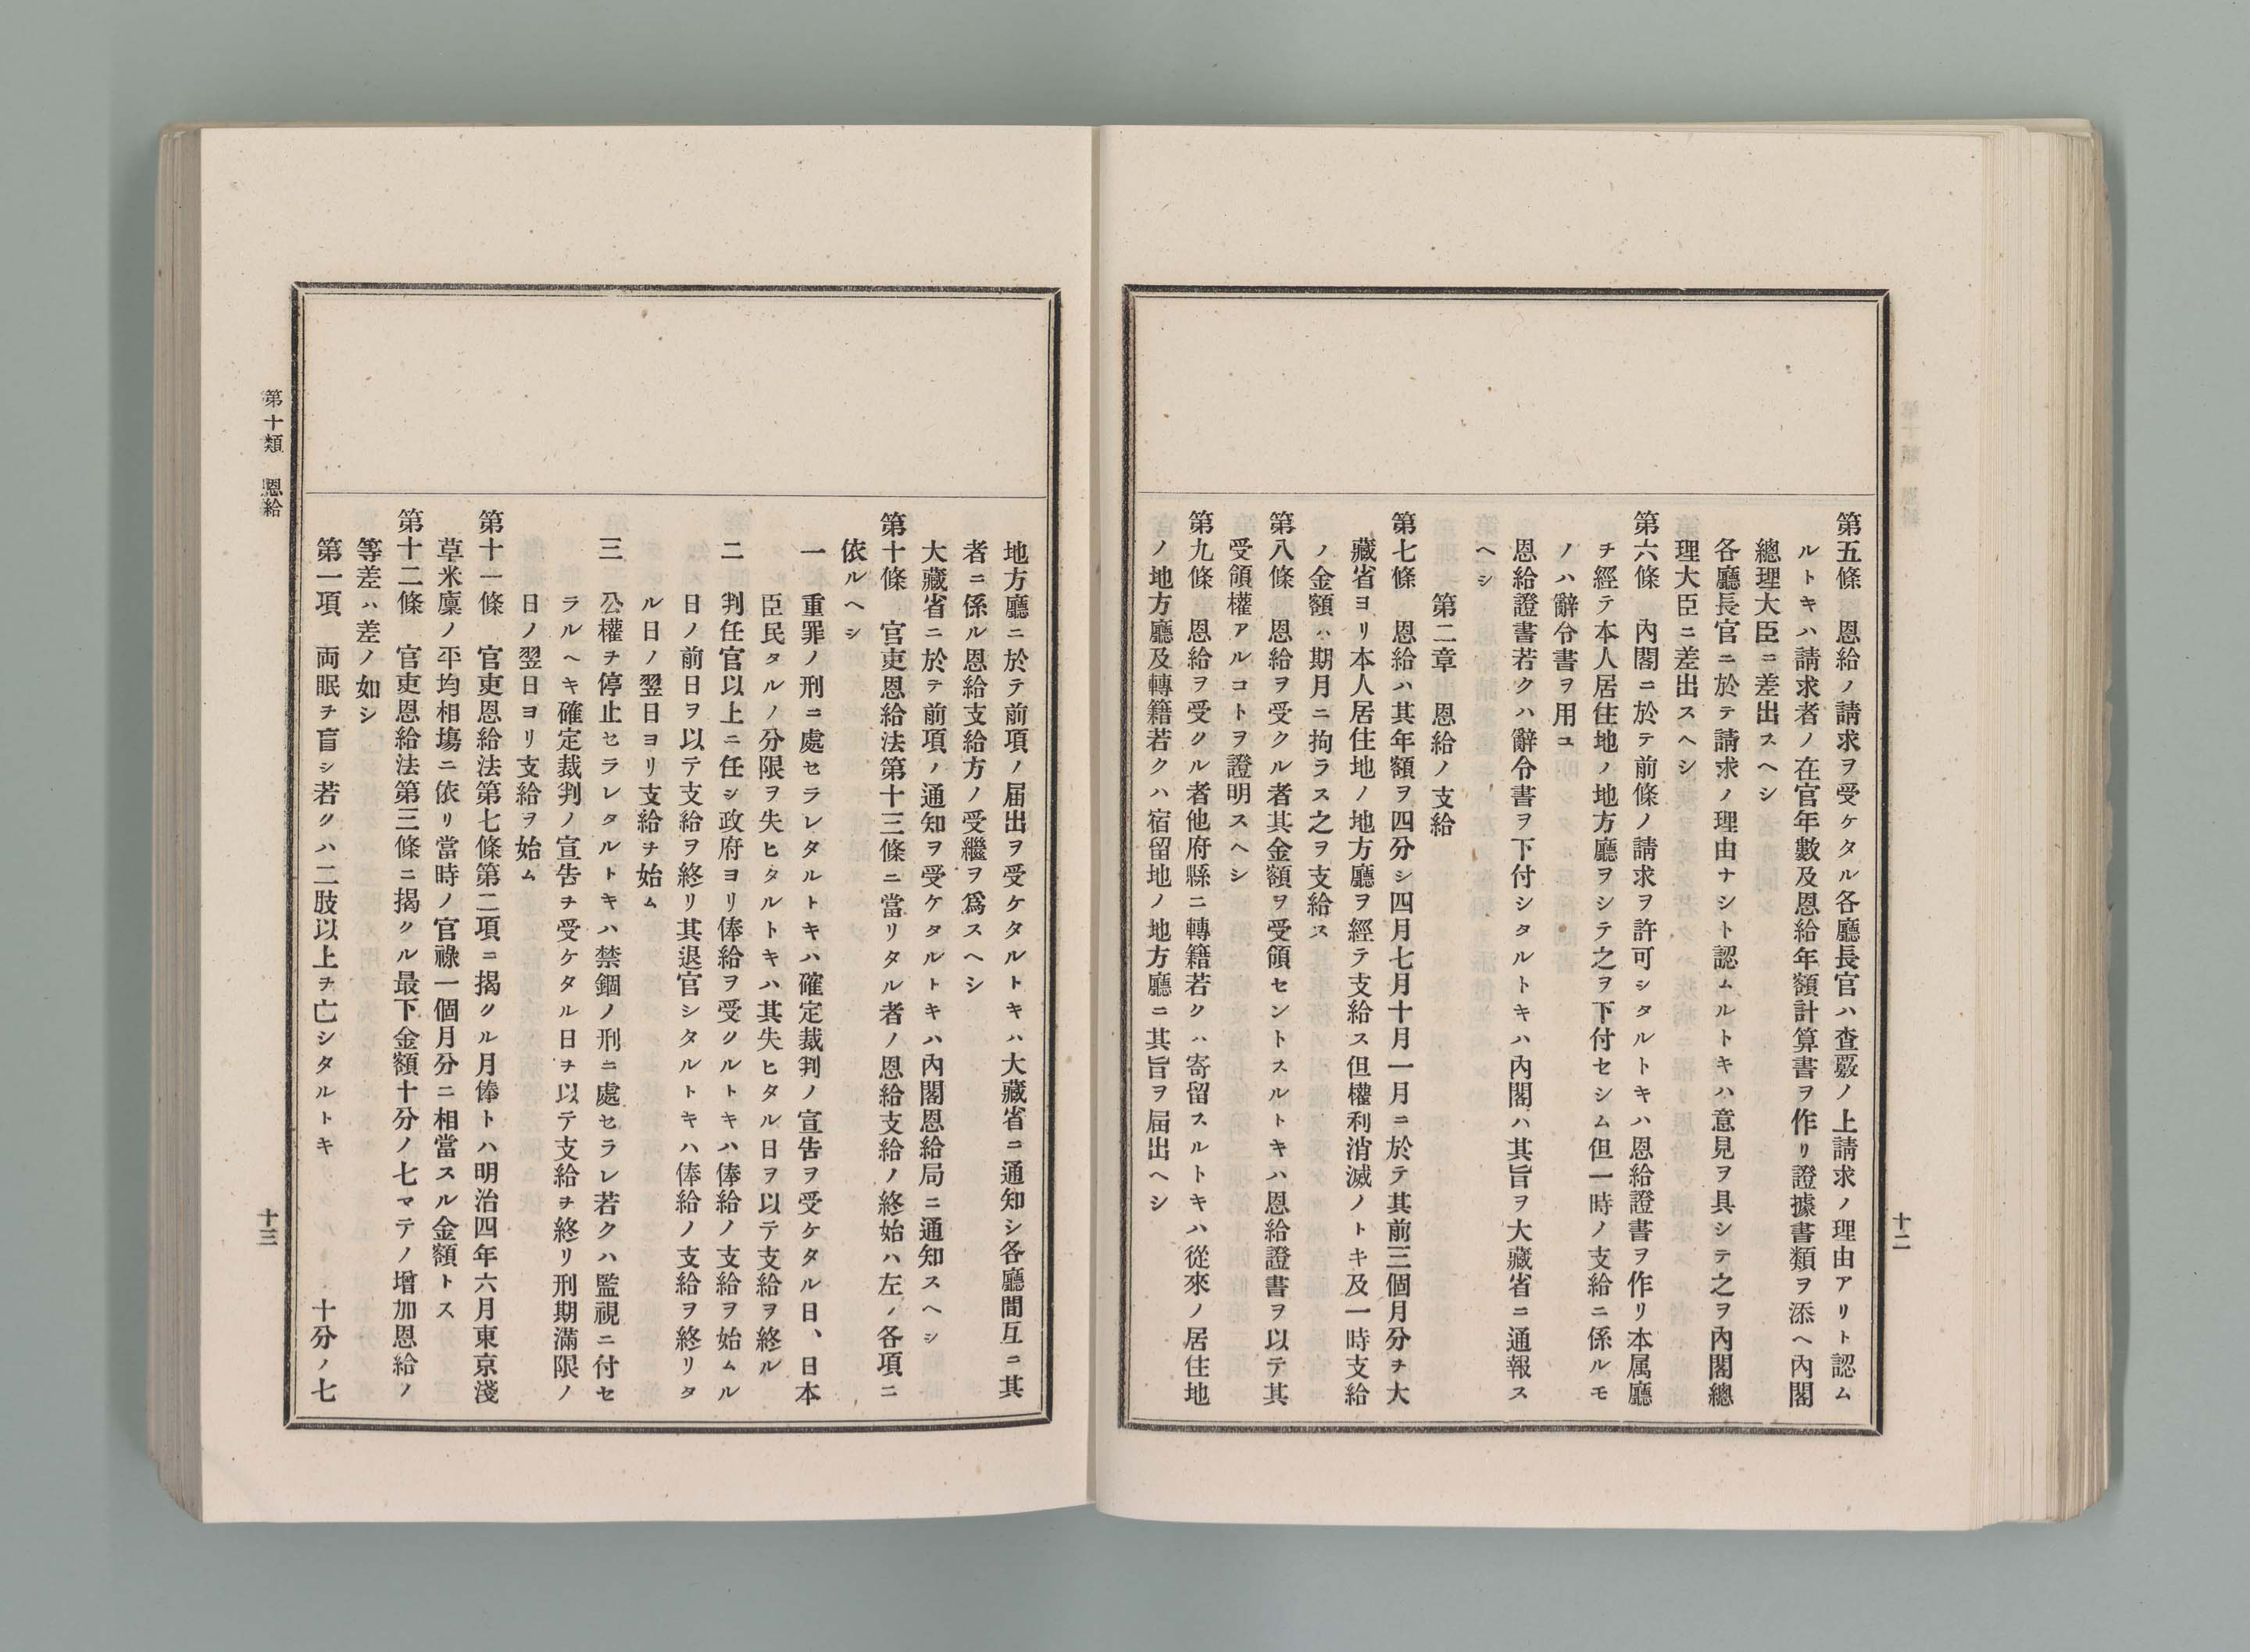 第五條　恩給ノ請求ヲ受ケタル各廳長官ハ查覈ノ上請求ノ理由アリト認ム
ルトキハ請求者ノ在官年數及恩給年額計算書ヲ作リ證據書類ヲ添ヘ內閣
總理大臣ニ差出スヘシ
各廳長官ニ於テ請求ノ理由ナシト認ムルトキハ意見ヲ具シテ之ヲ內閣總
理大臣ニ差出スヘシ
第六條　內閣ニ於テ前條ノ請求ヲ許可シタルトキハ恩給證書ヲ作リ本属廳
チ經テ本人居住地ノ地方廳ヲシテ之ヲ下付セシム但一時ノ支給ニ係ルモ
ノハ辭令書ヲ用ユ
恩給證書若クハ辭令書ヲ下付シタルトキハ內閣ハ其旨ヲ大藏省ニ通報ス
ヘシ
第二章　恩給ノ支給
第七條　恩給ハ其年額ヲ四分シ四月七月十月一月ニ於テ其前三個月分チ大
藏省ヨリ本人居住地ノ地方廳ヲ經テ支給ス但權利消滅ノトキ及一時支給
ノ金額ハ期月ニ拘ラス之ヲ支給ス
第八條　恩給ヲ受クル者其金額ヲ受領セントスルトキハ恩給證書ヲ以テ其
受領權アルコトヲ證明スヘシ
第九條　恩給ヲ受クル者他府縣ニ轉籍若クハ寄留スルトキハ從來ノ居住地
ノ地方廳及轉籍若クハ宿留地ノ地方廳ニ其旨ヲ届出ヘシ
十二
地方廳ニ於テ前項ノ届出ヲ受ケタルトキハ大藏省ニ通知シ各廳間互ニ其
者ニ係ル恩給支給方ノ受繼ヲ爲スヘシ
大藏省ニ於テ前項ノ通知ヲ受ケタルトキハ內閣恩給局ニ通知スヘシ
第十條　官吏恩給法第十三條ニ當リタル者ノ恩給支給ノ終始ハ左ノ各項ニ
依ルヘシ
一　重罪ノ刑ニ處セラレタルトキハ確定裁判ノ宣告ヲ受ケタル日、日本
臣民タルノ分限ヲ失ヒタルトキハ其失ヒタル日ヲ以テ支給ヲ終ル
二　判任官以上ニ任シ政府ヨリ俸給ヲ受クルトキハ俸給ノ支給ヲ始ムル
日ノ前日ヲ以テ支給ヲ終リ其退官シタルトキハ俸給ノ支給ヲ終リタ
ル日ノ翌日ヨリ支給チ始ム
三　公權チ停止セラレタルトキハ禁錮ノ刑ニ處セラレ若クハ監視ニ付セ
ラルヘキ確定裁判ノ宣告チ受ケタル日ヲ以テ支給チ終リ刑期滿限ノ
日ノ翌日ヨリ支給ヲ始ム
第十一條　官吏恩給法第七條第二項ニ揭クル月俸トハ明治四年六月東京淺
草米廩ノ平均相塲ニ依リ當時ノ官祿一個月分ニ相當スル金額トス
第十二條　官吏恩給法第三條ニ揭クル最下金額十分ノ七マテノ增加恩給ノ
等差ハ差ノ如シ
第一項　両眠チ盲シ若クハ二肢以上チ亡シタルトキ　十分ノ七
第十類　恩給
十三